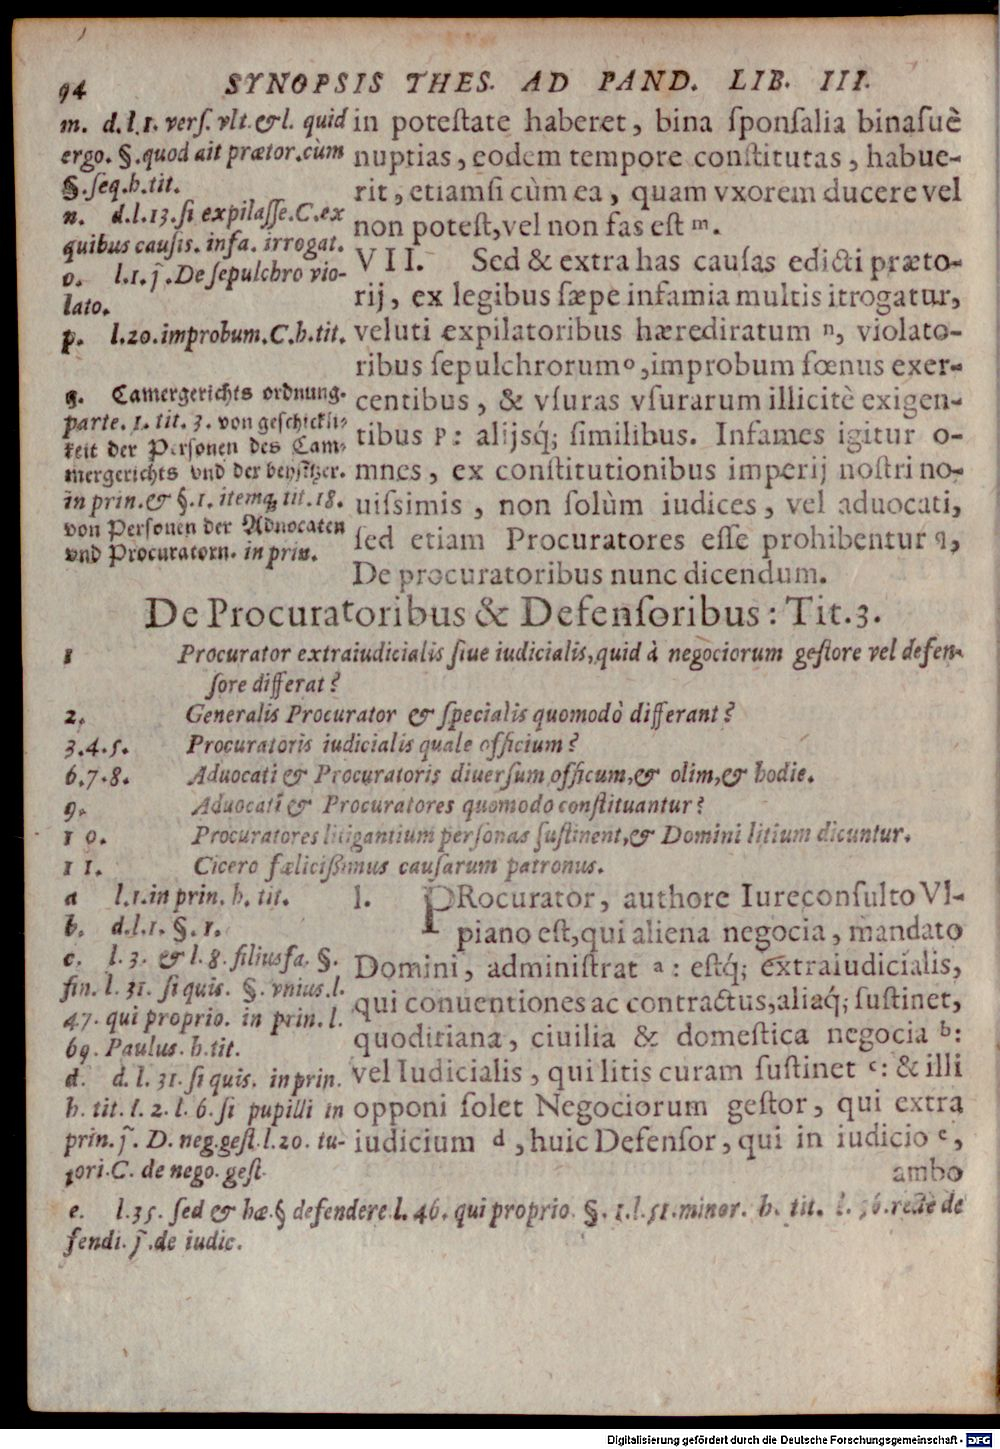 94 SYNOPSIS THES. AD PAND. LIB. III.
m. d. l. 1. verſ. vlt. & l. quid
ergo. §. quod ait prætor. cùm
§. ſeq. h. tit.
n. d. l. 13. ſi expilaſſe. C. ex
quibus cauſis. infa. irrogat.
o. l. 1. j̃. De ſepulchro vio-
lato.
p. l. 20. improbum. C. h. tit.
q. Camergerichts ordnung.
parte. 1. tit. 3. von geſchickli-
keit der Perſonen des Cam-
mergerichts vnd der beyſitzer.
in prin. & §. 1. itemq́; tit. 18.
von Perſonen der Aduocaten
vnd Procuratorn. in prin.
in poteſtate haberet, bina ſponſalia binaſuè
nuptias, eodem tempore conſtitutas, habue-
rit, etiamſi cùm ea, quam vxorem ducere vel
non poteſt, vel non fas eſt m.
VII. Sed & extra has cauſas edicti præto-
rij, ex legibus ſæpe infamia multis itrogatur,
veluti expilatoribus hærediratum n, violato-
ribus ſepulchrorum o, improbum fœnus exer-
centibus, & vſuras vſurarum illicitè exigen-
tibus p: alijsq́; ſimilibus. Infames igitur o-
mnes, ex conſtitutionibus imperij noſtri no-
uiſsimis, non ſolùm iudices, vel aduocati,
ſed etiam Procuratores eſſe prohibentur q,
De procuratoribus nunc dicendum.
De Procuratoribus & Defenſoribus: Tit. 3.
1 Procurator extraiudicialis ſiue iudicialis, quid à negociorum geſtore vel defen-
ſore differat?
2. Generalis Procurator & ſpecialis quomodò differant?
3. 4. 5. Procuratoris iudicialis quale officium?
6. 7. 8. Aduocati & Procuratoris diuerſum officum, & olim, & hodie.
9. Aduocati & Procuratores quomodo conſtituantur?
10. Procuratores litigantium perſonas ſuſtinent, & Domini litium dicuntur.
11. Cicero fæliciſsimus cauſarum patronus.
a l. 1. in prin. h. tit.
b. d. l. 1. §. 1.
c. l. 3. & l. 8. filiusfa. §.
fin. l. 31. ſi quis. §. vnius. l.
47. qui proprio. in prin. l.
69. Paulus. h. tit.
d. d. l. 31. ſi quis. in prin.
h. tit. l. 2. l. 6. ſi pupilli in
prin. j̃. D. neg. geſt. l. 20. tu-
tori. C. de nego. geſt.
I. PRocurator, authore Iureconſulto Vl-
piano eſt, qui aliena negocia, mandato
Domini, adminiſtrat a: eſtq́; extraiudicialis,
qui conuentiones ac contractus, aliaq́; ſuſtinet,
quoditiana, ciuilia & domeſtica negocia b:
vel Iudicialis, qui litis curam ſuſtinet c: & illi
opponi ſolet Negociorum geſtor, qui extra
iudicium d, huic Defenſor, qui in iudicio e,
ambo
e. l. 35. ſed & hæ. § defendere. l. 46. qui proprio. §. 1. l. 51. minor. h. tit. l. 56. rectè de
fendi. j̃. de iudic.
Digitalisierung gefördert durch die Deutsche Forschungsgemeinschaft - DFG